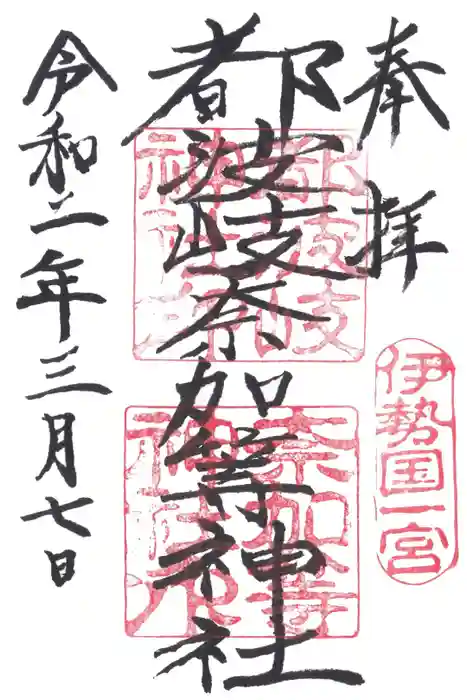 奉拝
伊勢国一宮
都波岐奈加等神社
令和二年三月七日